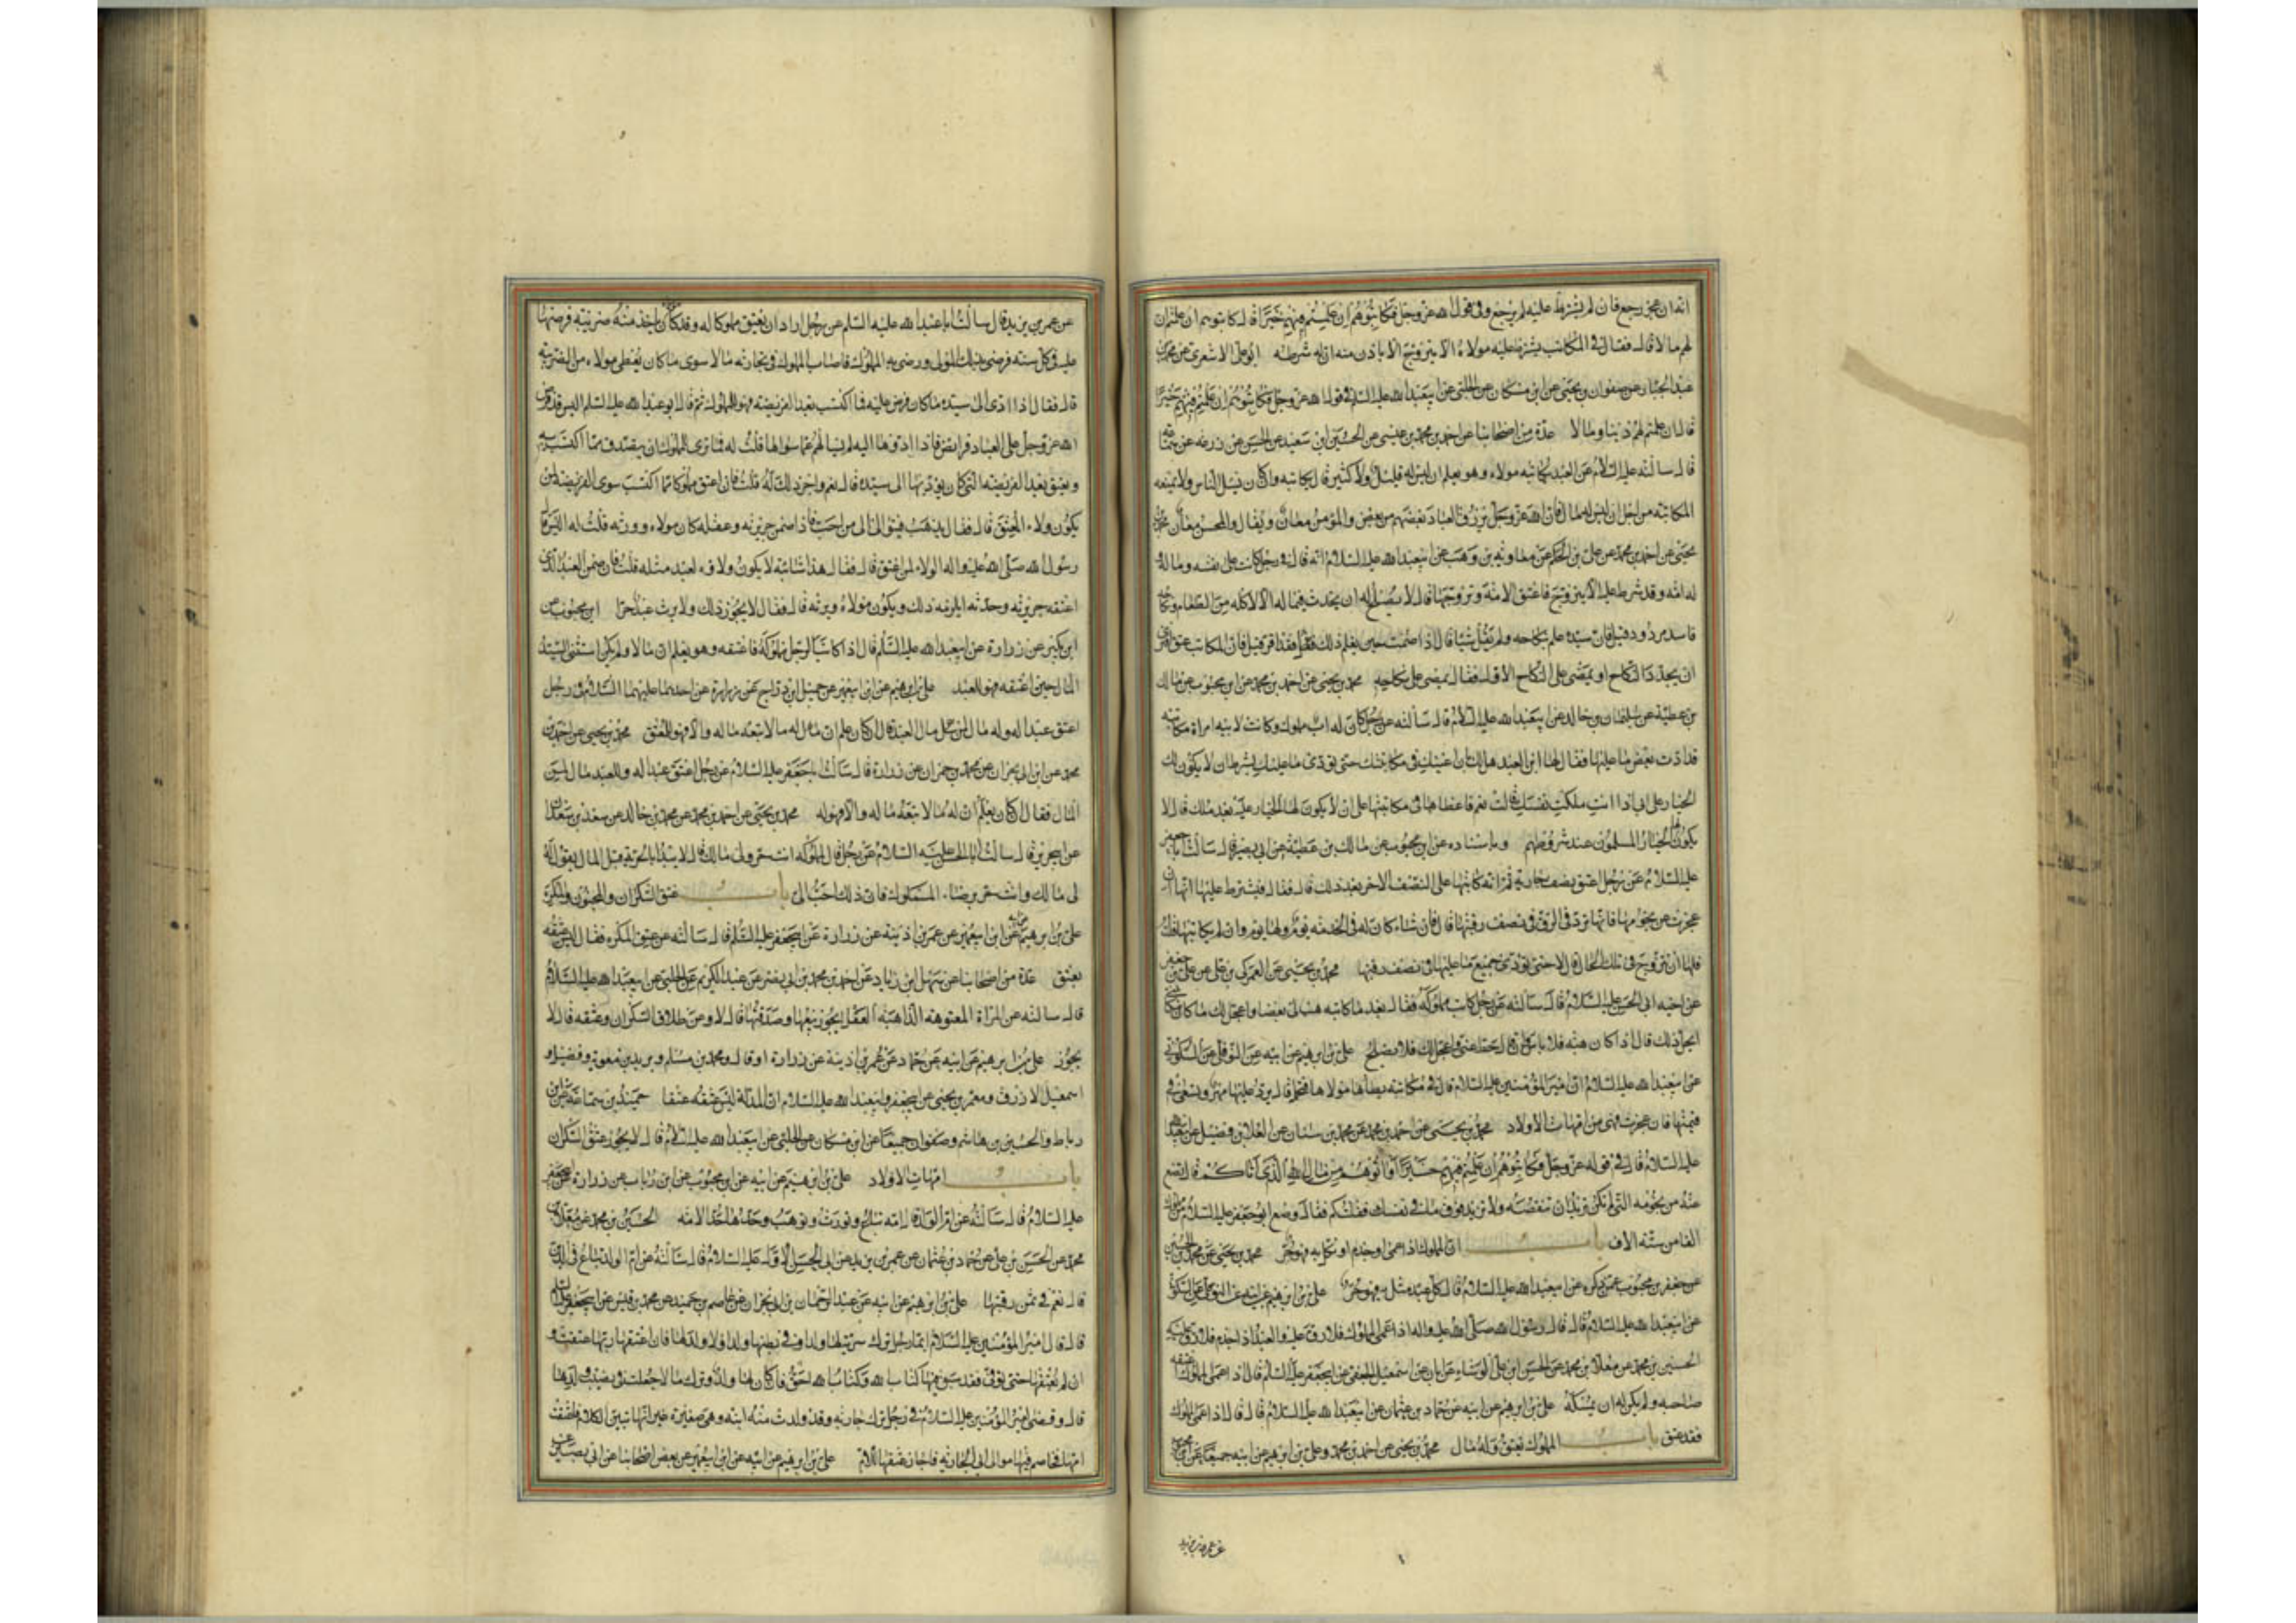 انه ان عجز رجع فان لم يشترط عليه لم يرجع وفي قول الله عز وجل فكاتبوهم ان علمتم فيهم خيرا قال كاتبوهم ان علمتم ان
لهم مالا قال فقال في المكاتب يشترط عليه مولاه الا يتزوج الا باذن منه ان له شرطه ابو علي الاشعري عن محمد بن
عبد الجبار عن صفوان بن يحيى عن ابن مسكان عن الحلبي عن ابيعبد الله عليه السلام في قول الله عز وجل فكاتبوهم ان علمتم فيهم خيرا
قال ان علمتم لهم دينا ومالا عدة من اصحابنا عن احمد بن محمد بن عيسى عن الحسين ابن سعيد عن الحسن عن زرعه عن سماعه
قال سالته عليه السلام عن العبد يكاتبه مولاه وهو يعلم ان ليس له قليل ولا كثير قال يكاتبه وان كان يسئل الناس ولا يمنعه
المكاتبة من اجل ان ليس له مال فان الله عز وجل يرزق العباد بعضهم من بعض والمؤمن معان ويقال والمحسن معان محمد بن
يحيى عن احمد بن محمد عن علي بن الحكم عن معاويه بن وهب عن ابيعبد الله عليه السلام انه قال في رجل كاتب على نفسه وماله و
له امة وقد شرط عليه الا يتزوج فاعتق الامة وتزوجها قال لا يصلح له ان يحدث في ماله الا الاكلة من الطعام ونكاحه
فاسد مردود قيل فان سيده علم بنكاحه ولم يقل شيئا قال اذا صمت حين يعلم ذلك فقد اقر قيل فان المكاتب عتق افترى
ان يجدد النكاح او يمضي على النكاح الاول فقال يمضي على نكاحه محمد بن يحيى عن احمد بن محمد عن ابن محبوب عن مالك
بن عطية عن سليمان بن خالد عن ابيعبد الله عليه السلام قال سالته عن رجل كان له اب مملوك وكانت لابيه امراة مكاتبة
قد ادت بعض ما عليها فقال لها ابن العبد هل لك ان اعينك في مكاتبتك حتى تؤدي ما عليك بشرط ان لا يكون لك
الخيار على ابي اذا انت ملكت نفسك قالت نعم فاعطاها في مكاتبتها على ان لا يكون لها الخيار عليه بعد ملك قال لا
يكون لها الخيار المسلمون عند شروطهم وباسناده عن ابن محبوب عن مالك بن عطية عن ابي بصير قال سالت ابا جعفر
عليه السلام عن رجل اعتق نصف جارية ثم انه كاتبها على النصف الاخر بعد ذلك قال فقال فيشترط عليها انها ان
عجزت عن نجومها فانها ترد في الرق في نصف رقبتها قال فان شاء كان له في الخدمة يوم ولها يوم وان لم يكاتبها قلت
فلها ان تتزوج في تلك الحال قال لا حتى تؤدي جميع ما عليها في نصف رقبتها محمد بن يحيى عن العمركي بن علي عن علي بن جعفر
عن اخيه ابي الحسن عليه السلام قال سالته عن رجل كاتب مملوكه فقال بعد ما كاتبه هب لي بعضا واعجل لك ما كان مكاتبتي
ايحل ذلك قال اذا كان هبة فلا باس وان قال حط عني واعجل لك فلا يصلح علي بن ابرهيم عن ابيه عن النوفلي عن السكوني
عن ابيعبد الله عليه السلام ان امير المؤمنين عليه السلام قال في مكاتبة يطاها مولاها فتحمل قال يرد عليها مهر مثلها وتسعى في
قيمتها فان عجزت فهي من امهات الاولاد محمد بن يحيى عن احمد بن محمد عن محمد بن سنان عن العلاء بن فضيل عن ابيعبد الله
عليه السلام قال في قوله عز وجل فكاتبوهم ان علمتم فيهم خيرا واتوهم من مال الله الذي اتاكم قال تضع
عنه من نجومه التي لم تكن تريد ان تنقصه ولا تزيد فوق ما في نفسك فقلت كم فقال وضع ابو جعفر عليه السلام عن مملوك
الفا من ستة الاف باب ان المملوك اذا عمي او جذم او نكل به فهو حر محمد بن يحيى عن محمد بن الحسين
عن جعفر بن محبوب عمن ذكره عن ابيعبد الله عليه السلام قال كل عبد مثل به فهو حر علي بن ابرهيم عن ابيه عن النوفلي عن السكوني
عن ابيعبد الله عليه السلام قال قال رسول الله صلى الله عليه واله اذا عمي المملوك فلا رق عليه والعبد اذا جذم فلا رق عليه
الحسين بن محمد عن معلى بن محمد عن الحسن ابن علي الوشاء عن ابان عن اسمعيل الجعفي عن ابيجعفر عليه السلم قال اذا عمي المملوك اعتقه
صاحبه ولم يكن له ان يمسكه علي بن ابرهيم عن ابيه عن حماد بن عثمان عن ابيعبد الله عليه السلام قال قال اذا عمي المملوك
فقد عتق باب المملوك يعتق وله مال محمد بن يحيى عن احمد بن محمد وعلي بن ابرهيم عن ابيه جميعا عن ابن محبوب
عن عمر بن يزيد
عن عمر بن يزيد قال سالت ابا عبد الله عليه السلم عن رجل اراد ان يعتق مملوكا له وقد كان ياخذ منه ضريبته فرضها
عليه في كل سنة فرضي بذلك المولى ورضي به المملوك فاصاب المملوك في تجارته مالا سوى ما كان يعطي مولاه من الضريبة
قال فقال اذا ادى الى سيده ما كان فرض عليه فما اكتسب بعد الفريضة فهو للمملوك ثم قال ابو عبد الله عليه السلم اليس قد فرض
الله عز وجل على العباد فرائض فاذا ادوها اليه لم يسالهم عما سواها قلت له فما ترى للمملوك ان يتصدق مما اكتسب
ويعتق بعد الفريضة التي كان يؤديها الى سيده قال نعم واجر ذلك له قلت فان اعتق مملوكا مما اكتسب سوى الفريضة لمن
يكون ولاء المعتق قال فقال يذهب فيتوالى الى من احب فاذا ضمن جريرته وعقله كان مولاه وورثه قلت له اليس قال
رسول الله صلى الله عليه واله الولاء لمن اعتق قال فقال هذا سائبة لا يكون ولاؤه لعبد مثله قلت فان ضمن العبد الذي
اعتقه جريرته وحدثه ايلزمه ذلك ويكون مولاه ويرثه قال فقال لا يجوز ذلك ولا يرث عبد حرا ابن محبوب عن
ابن بكير عن زرارة عن ابيعبد الله عليه السلم قال اذا كاتب الرجل مملوكه فاعتقه وهو يعلم ان له مالا ولم يكن استثنى السيد
المال حين اعتقه فهو للعبد علي بن ابرهيم عن ابن ابيعمير عن جميل ابن دراج عن زرارة عن احدهما عليهما السلام في رجل
اعتق عبدا له وله مال لمن مال العبد قال ان كان علم ان له مالا تبعه ماله والا فهو للمعتق محمد بن يحيى عن احمد بن
محمد عن ابن ابي نجران عن محمد بن حمران عن زرارة قال سالت ابا جعفر عليه السلام عن رجل اعتق عبدا له وللعبد مال لمن
المال فقال ان كان يعلم ان له مالا تبعه ماله والا فهو له محمد بن يحيى عن احمد بن محمد عن محمد بن خالد عن سعد بن سعد
عن ابي جرير قال سالت ابا الحسن عليه السلام عن رجل قال لمملوكه انت حر ولي مالك قال لا يبدا بالحرية قبل المال يقول له
لي مالك وانت حر برضاء المملوك فان ذلك احب الي باب عتق السكران والمجنون والمكره
علي بن ابرهيم عن ابيه عن ابن ابيعمير عن عمر بن اذينة عن زرارة عن ابيجعفر عليه السلم قال سالته عن عتق المكره فقال ليس عتقه
بعتق عدة من اصحابنا عن سهل ابن زياد عن احمد بن محمد بن ابي نصر عن عبد الكريم عن الحلبي عن ابيعبد الله عليه السلام
قال سالته عن المراة المعتوهه الذاهبة العقل يجوز بيعها وصدقتها قال لا وعن طلاق السكران وعتقه قال لا
يجوز علي بن ابرهيم عن ابيه عن حماد عن عمر بن اذينة عن زرارة او قال ومحمد بن مسلم وبريد بن معوية وفضيل و
اسمعيل الازرق ومعمر بن يحيى عن ابيجعفر وابيعبد الله عليه السلام ان المدله ليس عتقه عتقا حميد بن سماعة عن ابن
رباط والحسين بن هاشم وصفوان جميعا عن ابن مسكان عن الحلبي عن ابيعبد الله عليه السلام قال لا يجوز عتق السكران
باب امهات الاولاد علي بن ابرهيم عن ابيه عن ابن محبوب عن ابن رئاب عن زرارة عن ابيجعفر
عليه السلام قال سالته عن ام الولد قال امة تباع وتورث وتوهب وحدها حد الامة الحسين بن محمد عن معلى بن
محمد عن الحسن بن علي عن حماد بن عثمان عن عمر بن يزيد عن ابي الحسن الاول عليه السلام قال سالته عن ام الولد تباع في الدين
قال نعم في ثمن رقبتها علي بن ابرهيم عن ابيه عن عبد الرحمان بن ابي نجران عن عاصم بن حميد عن محمد بن قيس عن ابيجعفر عليه السلام
قال قال امير المؤمنين عليه السلام ايما رجل ترك سرية لها ولد او في بطنها ولد او لا ولد لها فان اعتقها ربها عتقت و
ان لم يعتقها حتى توفي فقد سبق فيها كتاب الله وكتاب الله احق فان كان لها ولد وترك مالا جعلت في نصيب ولدها
قال وقضى امير المؤمنين عليه السلام في رجل ترك جارية وقد ولدت منه ابنة وهي صغيرة غير انها تبين الكلام فاعتقت
امها فخاصم فيها موالي ابي الجارية فاجاز عتقها للام علي بن ابرهيم عن ابيه عن ابن ابيعمير عن بعض اصحابنا عن ابي بصير